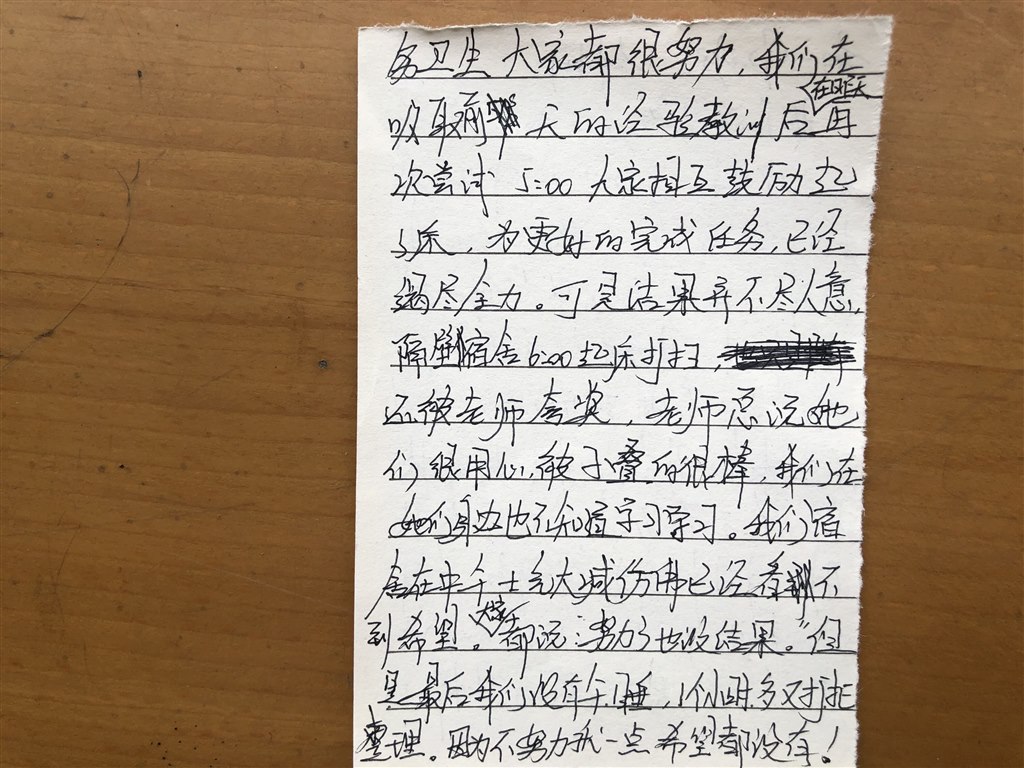 务卫生大家都很努力，我们在
吸取前天的经验教训后在昨天再
次尝试5:00大家相互鼓励起
床，为更好的完成任务，已经
竭尽全力。可是结果并不尽人意，
隔壁宿舍6:00起床打扫，
还被老师夸奖，老师总说她
们很用心，被子叠的很棒，我们在
她们身边也不知道学习学习。我们宿
舍在中午士气大减仿佛已经看不
到希望。大家都说："努力了也没结果。"但
是最后我们没有午睡，1个小时多又打扫
整理。因为不努力就一点希望都没有！